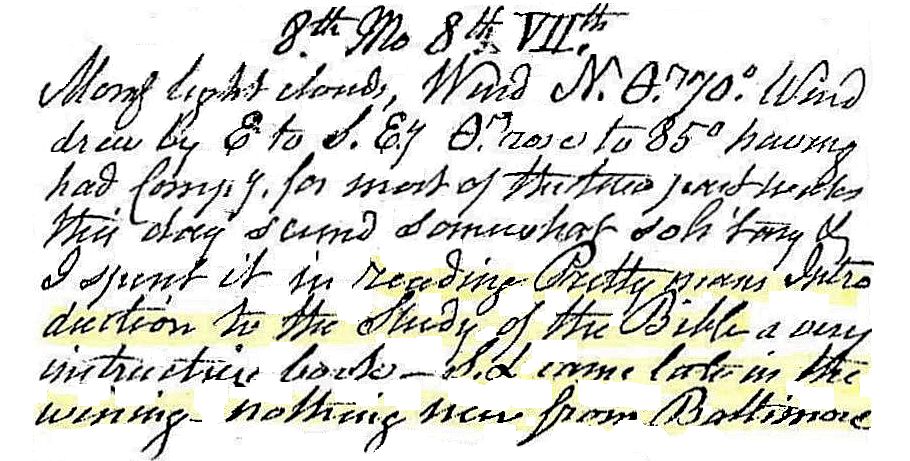 8th Mo 8th VIIth
Morng light clouds, Wind N. Θ.r 70°. Wind
drew by E to S. Ey Θ.r rose to 85° having
had Compy. for most of the two past weeks
this day seemd somewhat solitary &
I spent it in reading Prettymans Intro
duction to the Study of the Bible a very
instructive book – S.L came late in the
evening – nothing new from Baltimore